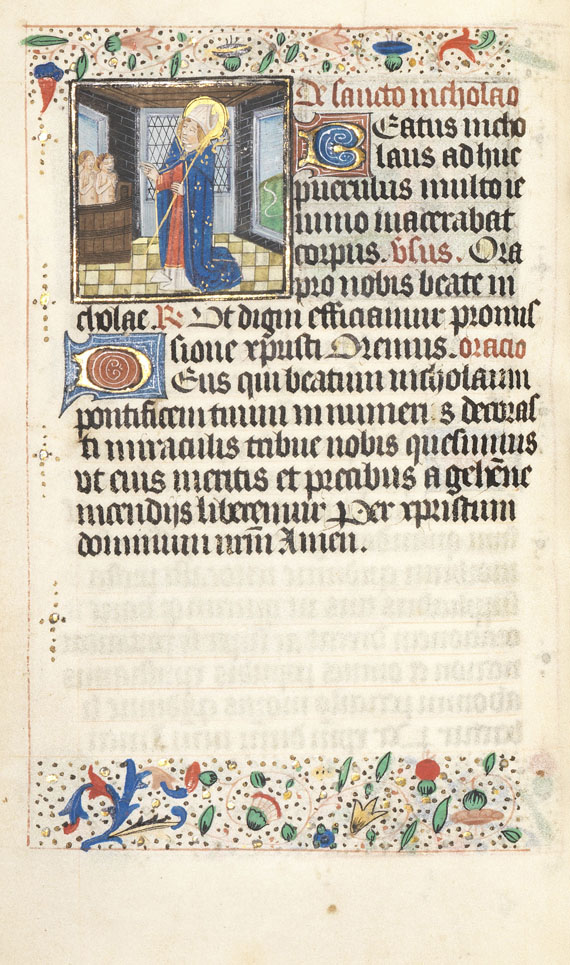 De sancto nicholao
Beatus nicho
laus adhuc
puerulus multo ie
iunio macerabat
corpus. Vsus. Ora
pro nobis beate ni
cholae. R. Ut digni efficiamur promis
sione xpristi Oremus. oracio
Deus qui beatum nicholaum
pontificem tuum in numeri s decoras
ti miraculis tribue nobis quesumus
vt eius meritis et precibus a gehēne
incendijs liberemur Per xpristum
dominum nr̄m Amen.